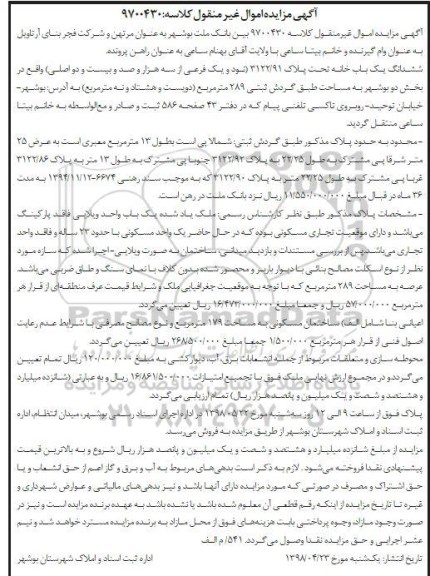 آگهی مزایده اموال غیر منقول کلاسه: ۹۷۰۰۴۳۰
آگهی مزایده اموال غیرمنقول کلاسه ۹۷۰۰۴۳۰ بین بانک ملت بوشهر به عنوان مرتهن و شرکت فجر بنای آرتاویل
به عنوان وام گیرنده و خانم بیتا ساعی با ولایت آقای بهنام ساعی به عنوان راهن پرونده.
ششدانگ یک باب خانه تحت پلاک ۳۱۲۲/۹۱ (نود و یک فرعی از سه هزار و صد و بیست و دو اصلی) واقع در
بخش دو بوشهر به مساحت طبق گردش ثبتی ۲۸۹ مترمربع (دویست و هشتاد و نه مترمربع) به آدرس: بوشهر-
خیابان توحید- روبروی تاکسی تلفنی پیام که در دفتر ۴۳ صفحه ۵۸۶ ثبت و صادر و مع‌الواسطه به خانم بیتا
ساعی منتقل گردید.
-محدود به حدود پلاک مذکور طبق گردش ثبتی: شمالا پی است بطول ۱۳ مترمربع معبری است به عرض ۲۵
متر شرقا پی مشترک به طول ۲۲/۲۵ به پلاک ۳۱۲۲/۹۲ جنوبا پی مشترک به طول ۱۳ متر به پلاک ۳۱۲۲/۸۶
غربا پی مشترک به طول ۲۲/۲۵ متر به پلاک ۳۱۲۲/۹۰ که به موجب سند رهنی ۶۶۷۴-۱۳۹۴/۱۱/۱۲ به مدت
۳۶ ماه در قبال مبلغ ۱۱/۵۵۰/۰۰۰/۰۰۰ ریال نزد بانک ملت در رهن است.
- مشخصات پلاک مذکور طبق نظر کارشناس رسمی: ملک یاد شده یک باب واحد ویلایی فاقد پارکینگ
می‌باشد و دارای موقعیت تجاری مسکونی بوده که در حال حاضر یک واحد مسکونی با حدود ۲۳ ساله و فاقد واحد
تجاری می‌باشد. پس از بررسی مستندات و بازدید میدانی، ساختمان به صورت ویلایی- اجرا شده که سازه مورد
نظر از نوع اسکلت مصالح بنائی با دیوار باربر و محصور شده بدون کلاف با نمای سنگ و طاق ضربی می‌باشد.
عرصه به مساحت ۲۸۹ مترمربع که با توجه به موقعیت جغرافیایی ملک و شرایط قیمت عرف منطقه‌ای از قرار هر
مترمربع ۵۷/۰۰۰/۰۰۰ ریال و جمعا مبلغ ۱۶/۴۷۳/۰۰۰/۰۰۰ ریال تعیین می‌گردد.
اعیانی بنا شامل الف) ساختمان مسکونی به مساحت ۱۷۹ مترمربع و نوع مصالح مصرفی با شرایط عدم رعایت
اصول فنی از قرار هر مترمربع ۱/۵۰۰/۰۰۰ جمعا مبلغ ۲۶۸/۵۰۰/۰۰۰ ریال تعیین می‌گردد.
محوطه سازی و متعلقات مربوط از جمله انشعابات برق، آب، دیوارکشی به مبلغ ۱۲۰/۰۰۰/۰۰۰ ریال تمام تعیین
می‌گردد و در مجموع ارزش نهایی ملک فوق با تجمیع امتیازات ۱۶/۸۶۱/۵۰۰/۰۰۰ ریال و به عبارتی (شانزده میلیارد
و هشتصد و شصت و یک میلیون و پانصد هزار ریال) تمام ارزیابی می‌گردد.
پلاک فوق از ساعت ۹ الی ۱۲ روز سه‌شنبه مورخ ۱۳۹۸/۰۵/۲۲ در اداره اجرای اسناد رسمی بوشهر، میدان انتظام، اداره
ثبت اسناد و املاک شهرستان بوشهر از طریق مزایده به فروش می‌رسد.
مزایده از مبلغ شانزده میلیارد و هشتصد و شصت و یک میلیون و پانصد هزار ریال شروع و به بالاترین قیمت
پیشنهادی نقدا فروخته می‌شود. لازم به ذکر است بدهی‌های مربوط به آب و برق و گاز اعم از حق انشعاب و یا
حق اشتراک و مصرف در صورتی که مورد مزایده دارای آنها باشد و نیز بدهی‌های مالیاتی و عوارض شهرداری و
غیره تا تاریخ مزایده از اینکه رقم قطعی آن معلوم شده باشد یا نشده باشد به عهده برنده مزایده است و نیز در
صورت وجود مازاد، وجوه پرداختی بابت هزینه‌های فوق از محل مازاد به برنده مزایده مسترد خواهد شد و نیم
عشر اجرایی و حق مزایده نقدا وصول می‌گردد. ۵۴۱/م الف
تاریخ انتشار: یکشنبه مورخ ۱۳۹۸/۰۴/۲۳ اداره ثبت اسناد و املاک شهرستان بوشهر